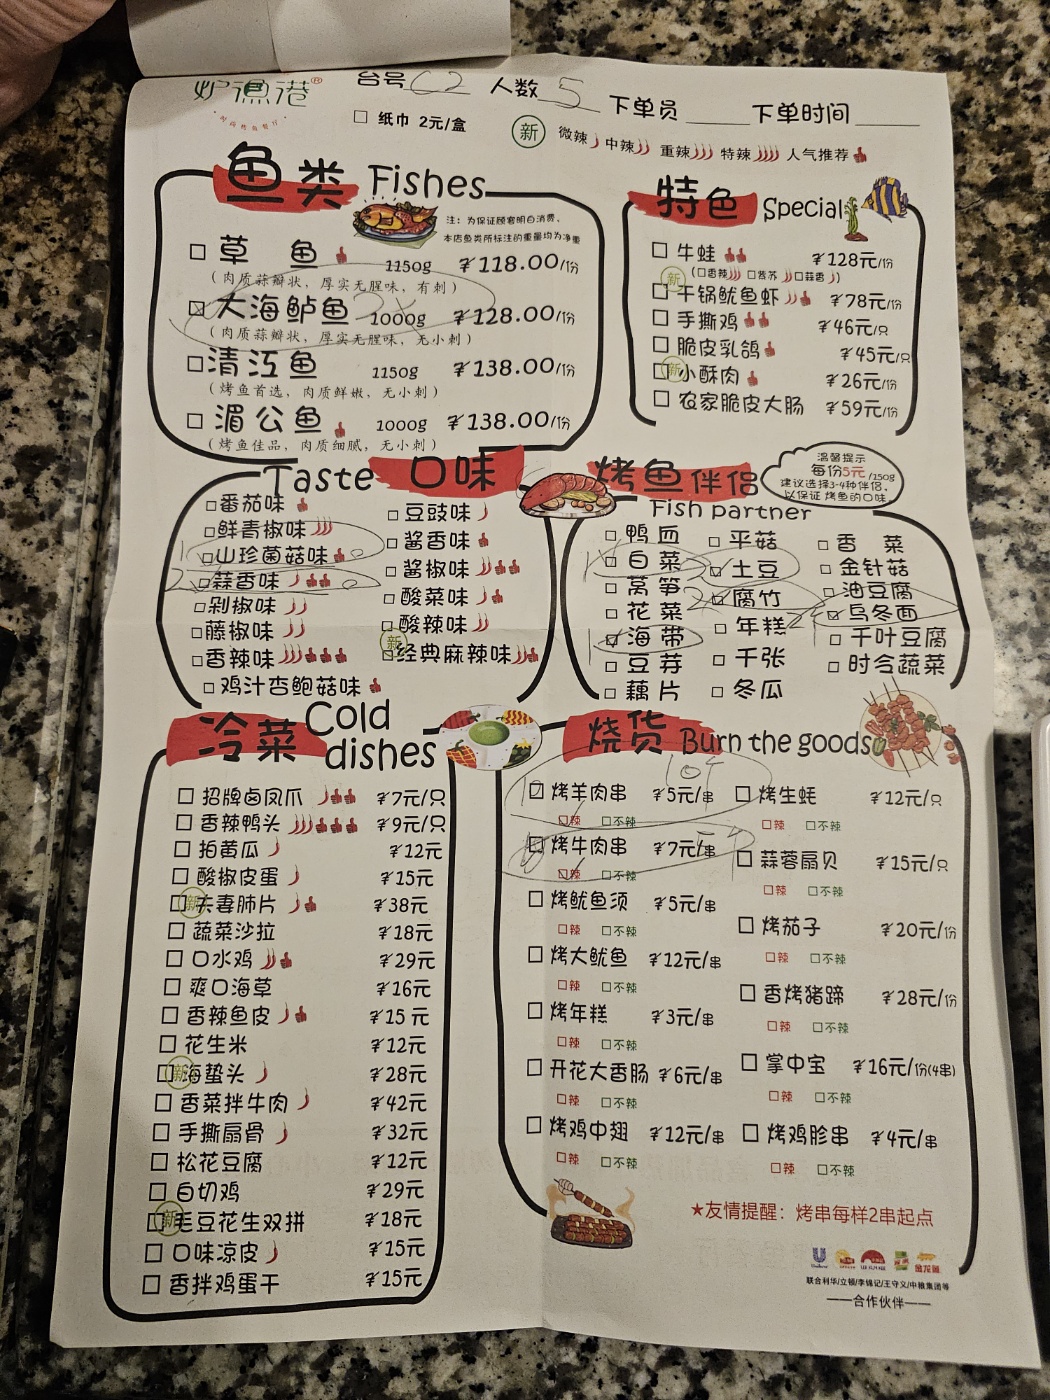 炉渔港®
台号 C2 人数 5 下单员 下单时间
□ 纸巾 2元/盒
新 微辣 中辣 重辣 特辣 人气推荐
鱼类 Fishes
注：为保证顾客明白消费、
本店鱼类所标注的重量均为净重
□ 草 鱼 1150g ¥118.00/份
（肉质蒜瓣状，厚实无腥味，有刺）
□ 大海鲈鱼 2X 1000g ¥128.00/份
（肉质蒜瓣状，厚实无腥味，无小刺）
□ 清江鱼 1150g ¥138.00/份
（烤鱼首选，肉质鲜嫩，无小刺）
□ 湄公鱼 1000g ¥138.00/份
（烤鱼佳品，肉质细腻，无小刺）
特色 Special
□ 牛蛙 ¥128元/份
（□香辣 □紫苏 □蒜香）
新 □ 干锅鱿鱼虾 ¥78元/份
□ 手撕鸡 ¥46元/只
□ 脆皮乳鸽 ¥45元/只
新 □ 小酥肉 ¥26元/份
□ 农家脆皮大肠 ¥59元/份
Taste 口味
□番茄味
□鲜青椒味
□山珍菌菇味
□蒜香味
□剁椒味
□藤椒味
□香辣味
□鸡汁杏鲍菇味
□豆豉味
□酱香味
□酱椒味
□酸菜味
□酸辣味
新 □经典麻辣味
烤鱼伴侣
Fish partner
温馨提示
每份5元/150g
建议选择3-4种伴侣，
以保证 烤鱼的口味
□ 鸭血
□ 白菜
□ 莴笋
□ 花菜
□ 海带
□ 豆芽
□ 藕片
□ 平菇
□ 土豆
□ 腐竹
□ 年糕
□ 千张
□ 冬瓜
□ 香菜
□ 金针菇
□ 油豆腐
□ 乌冬面
□ 千叶豆腐
□ 时令蔬菜
冷菜 Cold dishes
□ 招牌卤凤爪 ¥7元/只
□ 香辣鸭头 ¥9元/只
□ 拍黄瓜 ¥12元
□ 酸椒皮蛋 ¥15元
新 □ 夫妻肺片 ¥38元
□ 蔬菜沙拉 ¥18元
□ 口水鸡 ¥29元
□ 爽口海草 ¥16元
□ 香辣鱼皮 ¥15元
□ 花生米 ¥12元
新 □ 海蛰头 ¥28元
□ 香菜拌牛肉 ¥42元
□ 手撕扇骨 ¥32元
□ 松花豆腐 ¥12元
□ 白切鸡 ¥29元
新 □ 毛豆花生双拼 ¥18元
□ 口味凉皮 ¥15元
□ 香拌鸡蛋干 ¥15元
烧货 Burn the goods
□ 烤羊肉串 ¥5元/串
□辣 □不辣
□ 烤牛肉串 ¥7元/串
□辣 □不辣
□ 烤鱿鱼须 ¥5元/串
□辣 □不辣
□ 烤大鱿鱼 ¥12元/串
□辣 □不辣
□ 烤年糕 ¥3元/串
□辣 □不辣
□ 开花大香肠 ¥6元/串
□辣 □不辣
□ 烤鸡中翅 ¥12元/串
□辣 □不辣
□ 烤生蚝 ¥12元/只
□辣 □不辣
□ 蒜蓉扇贝 ¥15元/只
□辣 □不辣
□ 烤茄子 ¥20元/份
□辣 □不辣
□ 香烤猪蹄 ¥28元/份
□辣 □不辣
□ 掌中宝 ¥16元/份(4串)
□辣 □不辣
□ 烤鸡胗串 ¥4元/串
□辣 □不辣
★友情提醒：烤串每样2串起点
联合利华/立顿/李锦记/王守义/中粮集团等
——合作伙伴——